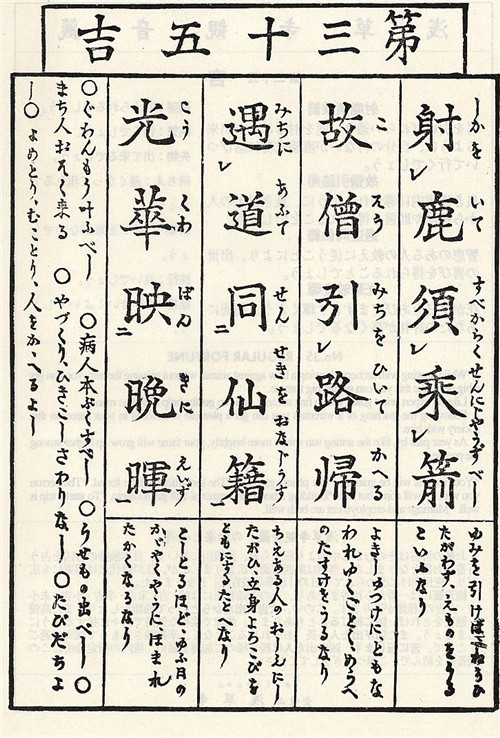 第三十五吉
射レ鹿須レ乗レ箭
しかをいて すべからくせんにじやうずべし
故僧引レ路帰
こそう みちをひいて かへる
遇レ道同二仙籍一
みちに あふて せんせきを おなじうす
光華映二晩暉一
こうくわ ばんきに えいず
ゆみを引けばねらひ
たがわず、えものをうる
ことなり
われゆくごとく、めうへ
のたすけをうるなり
ちえある人のおしえにし
たがひ、立身よろこびを
ともにするたとなり
としとるほど、ゆふ日の
かゞやくやうに、ほまれ
たかくなるなり
〇ぐわんもう叶ふべし 〇病人本ぷくすべし 〇うせもの出べし 〇
まち人おそく来る 〇やづくり、ひきこしさわりなし 〇たびだちよ
し 〇よめとり、むことり、人をかゝゆるよし